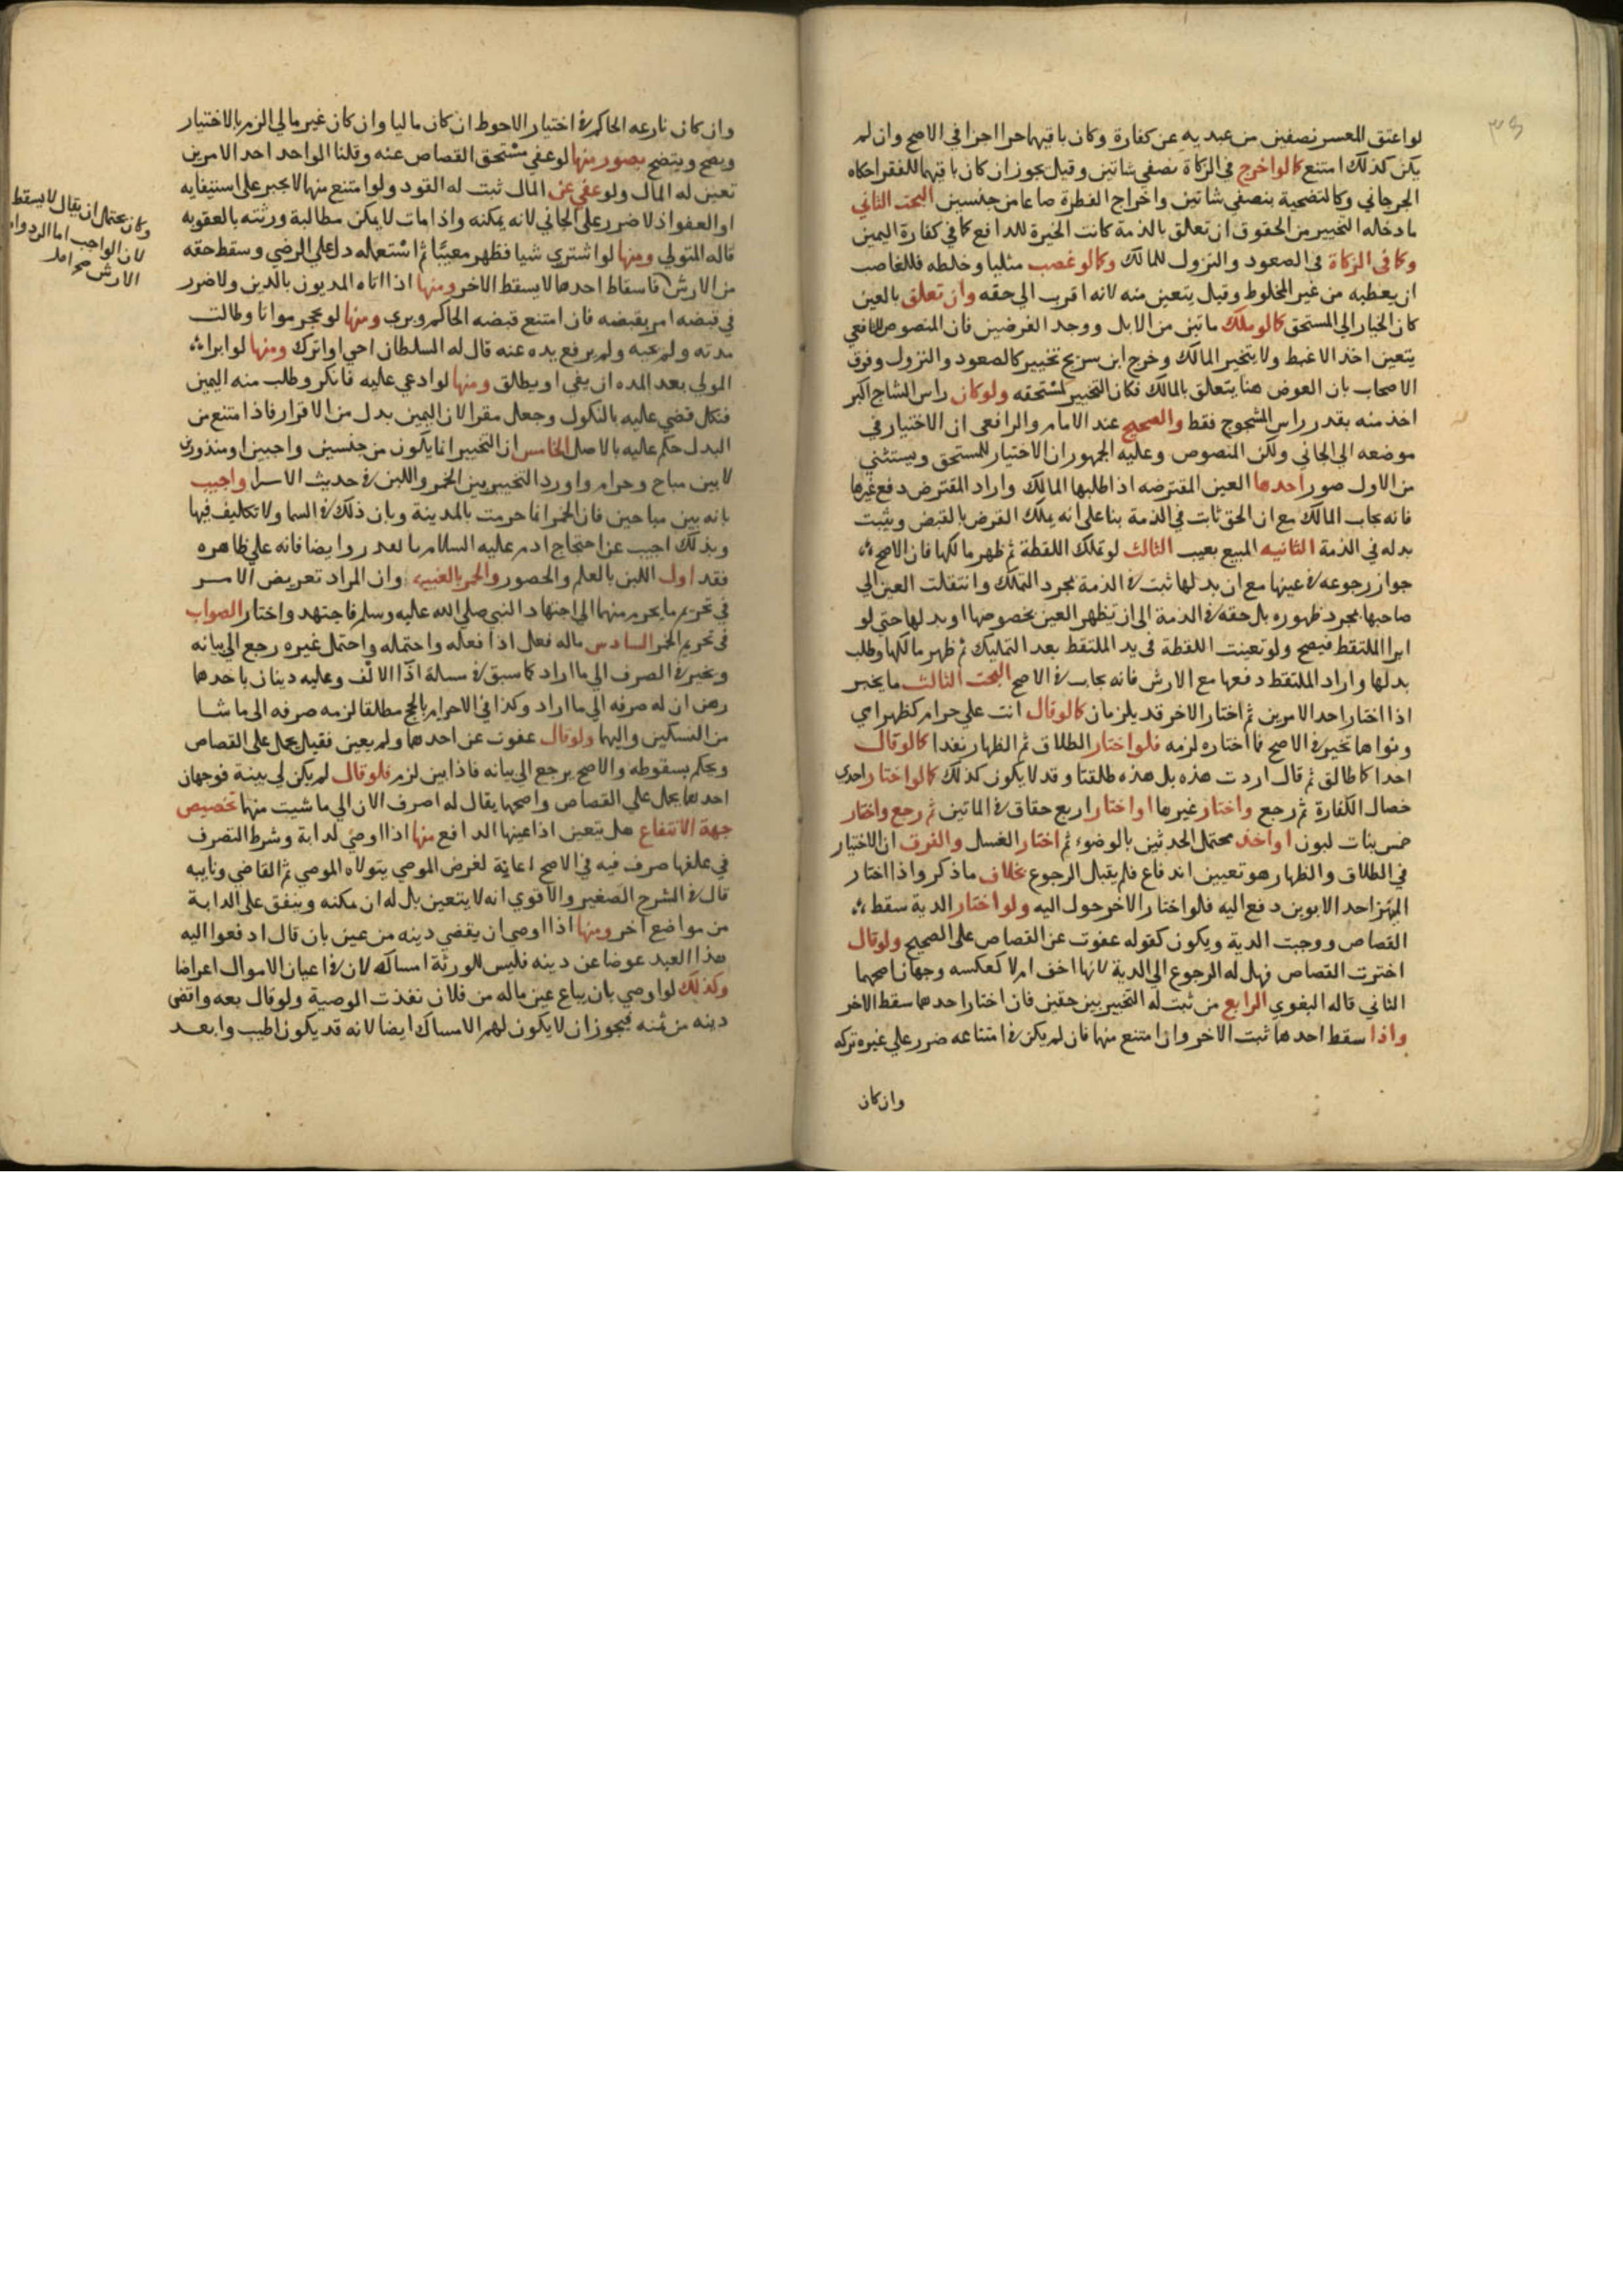 لو اعتق المعسر نصفين من عبديه عن كفارة وكان باقيهما حرا اجزا في الاصح وان لم
يكن كذلك امتنع كما لو اخرج في الزكاة نصفي شاتين وقيل يجوز ان كان باقيهما للفقرا حكاه
الجرجاني وكالتضحية بنصفي شاتين واخراج الفطرة صاعا من جنسين البحث الثاني
ما دخله التخيير من الحقوق ان تعلق بالذمة كانت الخيرة للدافع كما في كفارة اليمين
وكما في الزكاة في الصعود والنزول للمالك وكما لو غصب مثليا وخلطه فللغاصب
ان يعطيه من غير المخلوط وقيل يتعين منه لانه اقرب الي حقه وان تعلق بالعين
كان الخيار الي المستحق كما لو ملك ماتين من الابل ووجد الفرضين فان المنصوص للشافعي
يتعين اخذ الاغبط ولا يتخير المالك وخرج ابن سريج تخييره كالصعود والنزول وفرق
الاصحاب بان العوض هنا يتعلق بالمالك فكان التخيير لمستحقه ولو كان راس الشاج اكبر
اخذ منه بقدر راس المشجوج فقط والصحيح عند الامام والرافعي ان الاختيار في
موضعه الي الجاني ولكن المنصوص وعليه الجمهور ان الاختيار للمستحق ويستثني
من الاول صور احدها العين المقترضه اذا طلبها المالك واراد المقترض دفع غيرها
فانه يجاب المالك مع ان الحق ثابت في الذمة بنا علي انه يملك القرض بالقبض ويثبت
بدله في الذمة الثانيه المبيع بعيب الثالث لو تملك اللقطة ثم ظهر مالكها فان الاصح
جواز رجوعه في عينها مع ان بدلها ثبت في الذمة بمجرد التملك وانتقلت العين الي
صاحبها بمجرد ظهوره بل حقه في الذمة الي ان يظهر العين بخصوصها او بدلها حتي لو
ابرا الملتقط فيصح ولو تعينت اللقطة في يد الملتقط بعد التمليك ثم ظهر مالكها وطلب
بدلها واراد الملتقط دفعها مع الارش فانه يجاب في الاصح البحث الثالث ما يخير
اذا اختار احد الامرين ثم اختار الاخر قد يلزمان كما لو قال انت علي حرام كظهر امي
ونواهما تخير في الاصح فما اختاره لزمه فلو اختار الطلاق ثم الظهار نفذا كما لو قال
احداكما طالق ثم قال اردت هذه بل هذه طلقتا وقد لا يكون كذلك كما لو اختار احدي
خصال الكفارة ثم رجع واختار غيرها او اختار اربع حقاق في الماتين ثم رجع واختار
خمس بنات لبون او اخذ محتمل الحدثين بالوضوء ثم اختار الغسل والفرق ان الاختيار
في الطلاق والظهار هو تعيين اندفاع فلم يقبل الرجوع بخلاف ما ذكر واذا اختار
المميز احد الابوين دفع اليه فلو اختار الاخر حول اليه ولو اختار الدية سقط
القصاص ووجبت الدية ويكون كقوله عفوت عن القصاص علي الصحيح ولو قال
اخترت القصاص فهل له الرجوع الي الدية لانها اخف ام لا كعكسه وجهان اصحهما
الثاني قاله البغوي الرابع من ثبت له التخيير بين حقين فان اختار احدهما سقط الاخر
واذا سقط احدهما ثبت الاخر وان امتنع منهما فان لم يكن في امتناعه ضرر علي غيره تركه
وان كان
وان كان نازعه الحاكم في اختيار الاحوط ان كان ماليا وان كان غير مالي الزم بالاختيار
ويصح ويتضح بصور منها لو عفي مستحق القصاص عنه وقلنا الواحد احد الامرين
تعين له المال ولو عفي عن المال ثبت له القود ولو امتنع منهما لا يجبر علي استيفايه
او العفو اذ لا ضرر علي الجاني لانه يمكنه واذا مات لا يمكن مطالبة ورثته بالعقوبه
قاله المتولي ومنها لو اشتري شيا فظهر معيبًا ثم استعماله دل علي الرضي وسقط حقه
من الارش فاسقاط احدهما لا يسقط الاخر ومنها اذا اتاه المديون بالدين ولا ضرر
في قبضه امر بقبضه فان امتنع قبضه الحاكم وبري ومنها لو تحجر مواتا وطالت
مدته ولم يحيه ولم يرفع يده عنه قال له السلطان احي او اترك ومنها لو ابرا
المولي بعد المده ان يفي او يطلق ومنها لو ادعي عليه فانكر وطلب منه اليمين
فنكل قضي عليه بالنكول وجعل مقرا لان اليمين بدل من الاقرار فاذا امتنع من
البدل حكم عليه بالاصل الخامس ان التخيير انما يكون من جنسين واجبين او مندوبين
لا بين مباح وحرام واورد التخيير بين الخمر واللبن في حديث الاسرا واجيب
بانه بين مباحين فان الخمر انما حرمت بالمدينة وبان ذلك في السما ولا تكليف فيها
وبذلك اجيب عن احتجاج ادم عليه السلام بالقدر وايضا فانه علي ظاهره
فقد اول اللبن بالعلم والحصور والخمر بالغيبه وان المراد تعريض الامر
في تحريم ما يحرم منهما الي اجتهاد النبي صلي الله عليه وسلم فاجتهد واختار الصواب
في تحريم الخمر السادس ماله فعل اذا فعله واحتمله واحتمل غيره رجع الي بيانه
ويخير في الصرف الي ما اراد كما سبق في مسالة اذا الالف وعليه دينان باحدهما
رهن ان له صرفه الي ما اراد وكذا في الاحرام بالحج مطلقا لزمه صرفه الي ما شا
من النسكين واليهما ولو قال عفوت عن احدهما ولم يعين فقيل يحمل علي القصاص
ويحكم بسقوطه والاصح يرجع الي بيانه فاذا بين لزم فلو قال لم يكن لي بينة فوجهان
احدهما يحمل علي القصاص واصحهما يقال له اصرف الان الي ما شيت منهما تخصيص
جهة الانتفاع هل يتعين اذا عينها الدافع منها اذا اوصي لدابة وشرط التصرف
في علفها صرف فيه في الاصح رعاية لغرض الموصي يتولاه الموصي ثم القاضي ونايبه
قال في الشرح الصغير والاقوي انه لا يتعين بل له ان يمكنه وينفق علي الدابة
من مواضع اخر ومنها اذا اوصي ان يقضي دينه من عين بان قال ادفعوا اليه
هذا العبد عوضا عن دينه فليس للورثة امساكه لان في اعيان الاموال اعراضا
وكذلك لو اوصي بان يباع عين ماله من فلان نفذت الوصية ولو قال بعه واقض
دينه من ثمنه فيجوز ان لا يكون لهم الامساك ايضا لانه قد يكون اطيب وابعد
وكان يحتمل ان يقال لا يسقط
لان الواجب اما الرد واما
الارش